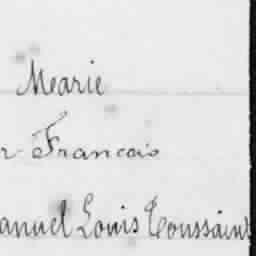 Marie
r Francois
anuel Louis Toussaint